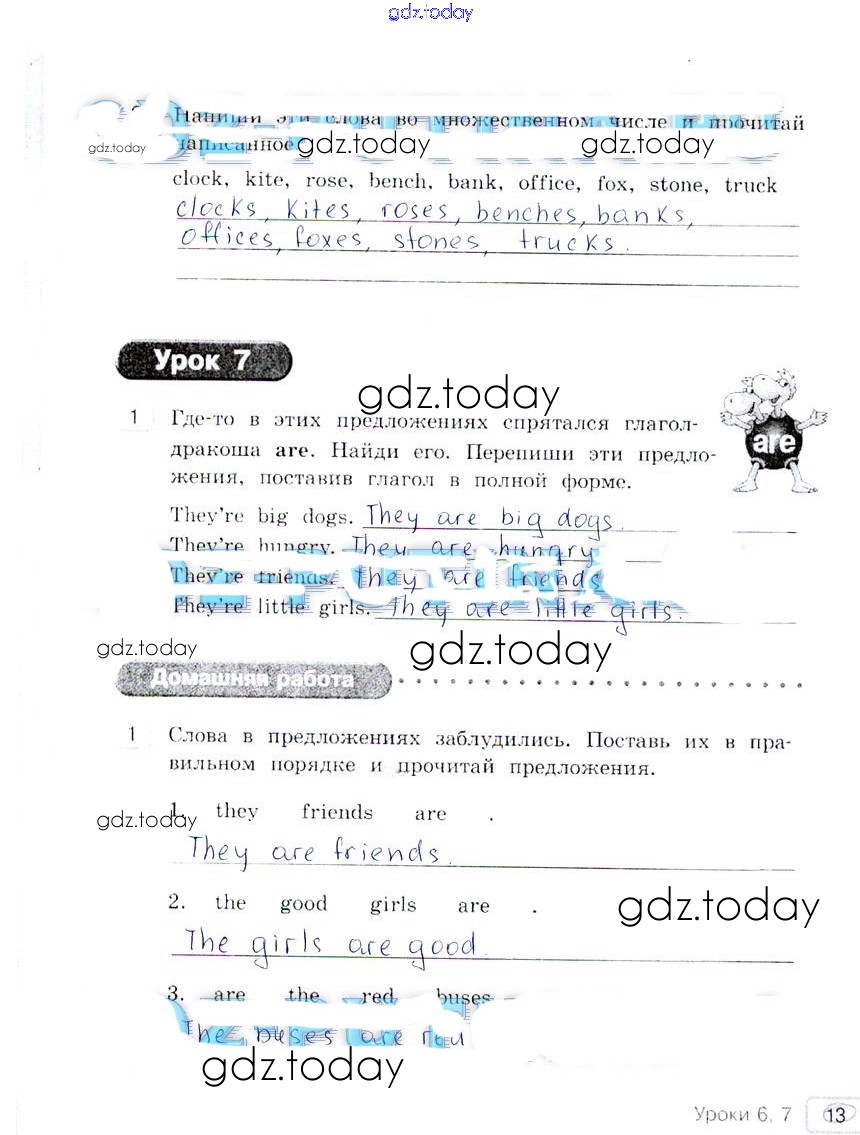 gdz.today
Напиши эти слова во множественном числе и прочитай
gdz.today записанное gdz.today gdz.today
clock, kite, rose, bench, bank, office, fox, stone, truck
clocks, kites, roses, benches, banks,
offices, foxes, stones, trucks.
Урок 7
gdz.today
1 Где-то в этих предложениях спрятался глагол-
дракоша are. Найди его. Перепиши эти предло-
жения, поставив глагол в полной форме.
are
They're big dogs. They are big dogs.
They're hungry. They are hungry
They're friends. They are friends
They're little girls. They are little girls.
gdz.today gdz.today
Домашняя работа
1 Слова в предложениях заблудились. Поставь их в пра-
вильном порядке и прочитай предложения.
1. they friends are .
gdz.today
They are friends.
2. the good girls are .
gdz.today
The girls are good.
3. are the red buses
The buses are
gdz.today
Уроки 6, 7 13